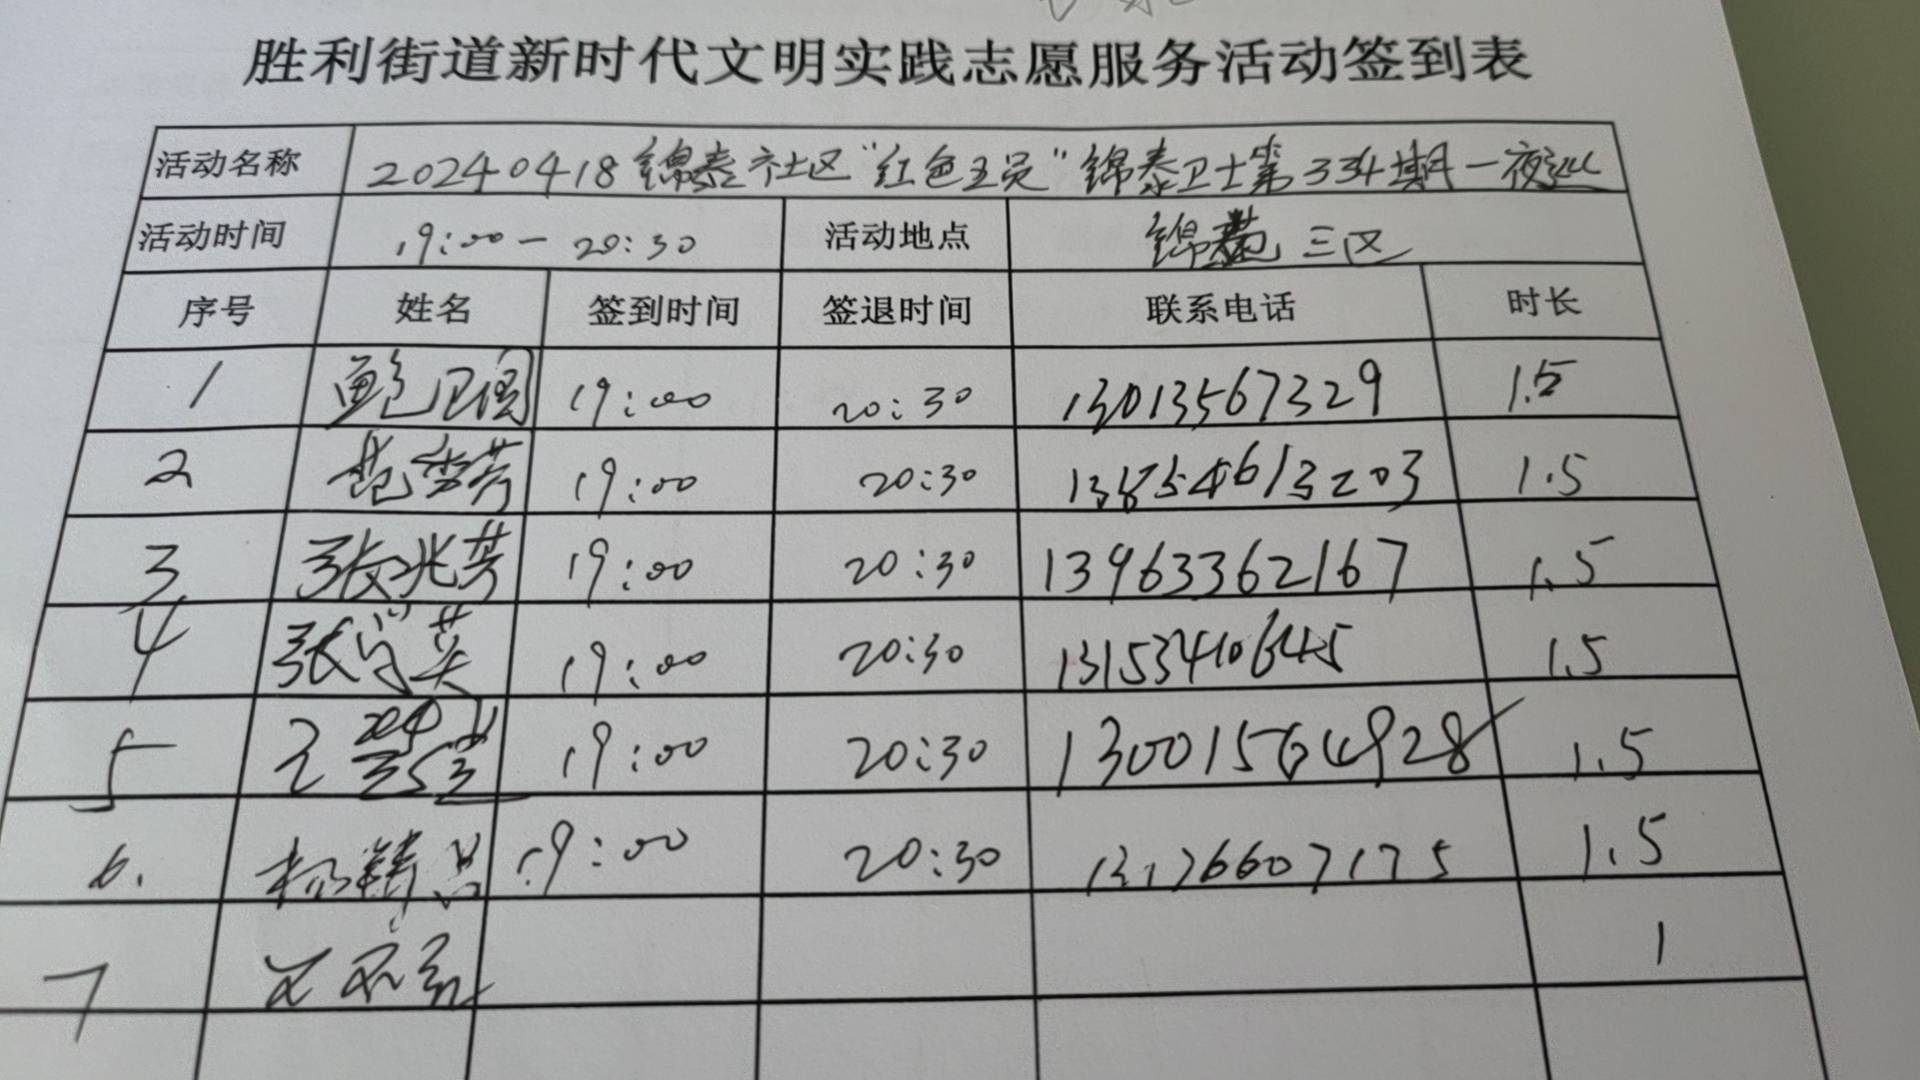 胜利街道新时代文明实践志愿服务活动签到表
活动名称 20240418锦泰社区"红色王员"锦泰卫士第334期一夜巡
活动时间 19:00-20:30 活动地点 锦苑三区
序号 姓名 签到时间 签退时间 联系电话 时长
1 鲍卫国 19:00 20:30 13013567329 1.5
2 范雪芳 19:00 20:30 13854613203 1.5
3 张兆芳 19:00 20:30 13963362167 1.5
4 张学英 19:00 20:30 13153410645 1.5
5 王 19:00 20:30 13001564928 1.5
6. 杨 19:00 20:30 13176607175 1.5
7 1